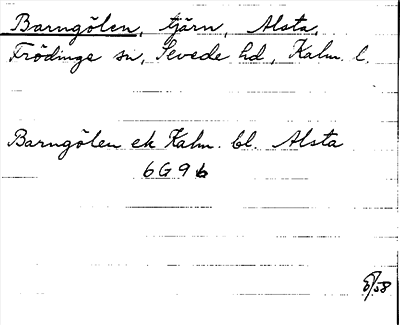 Barngölen, tjärn, Alsta,
Frödinge sn, Sevede hd, Kalm. l.
Barngölen ek Kalm. bl. Alsta
6G9b